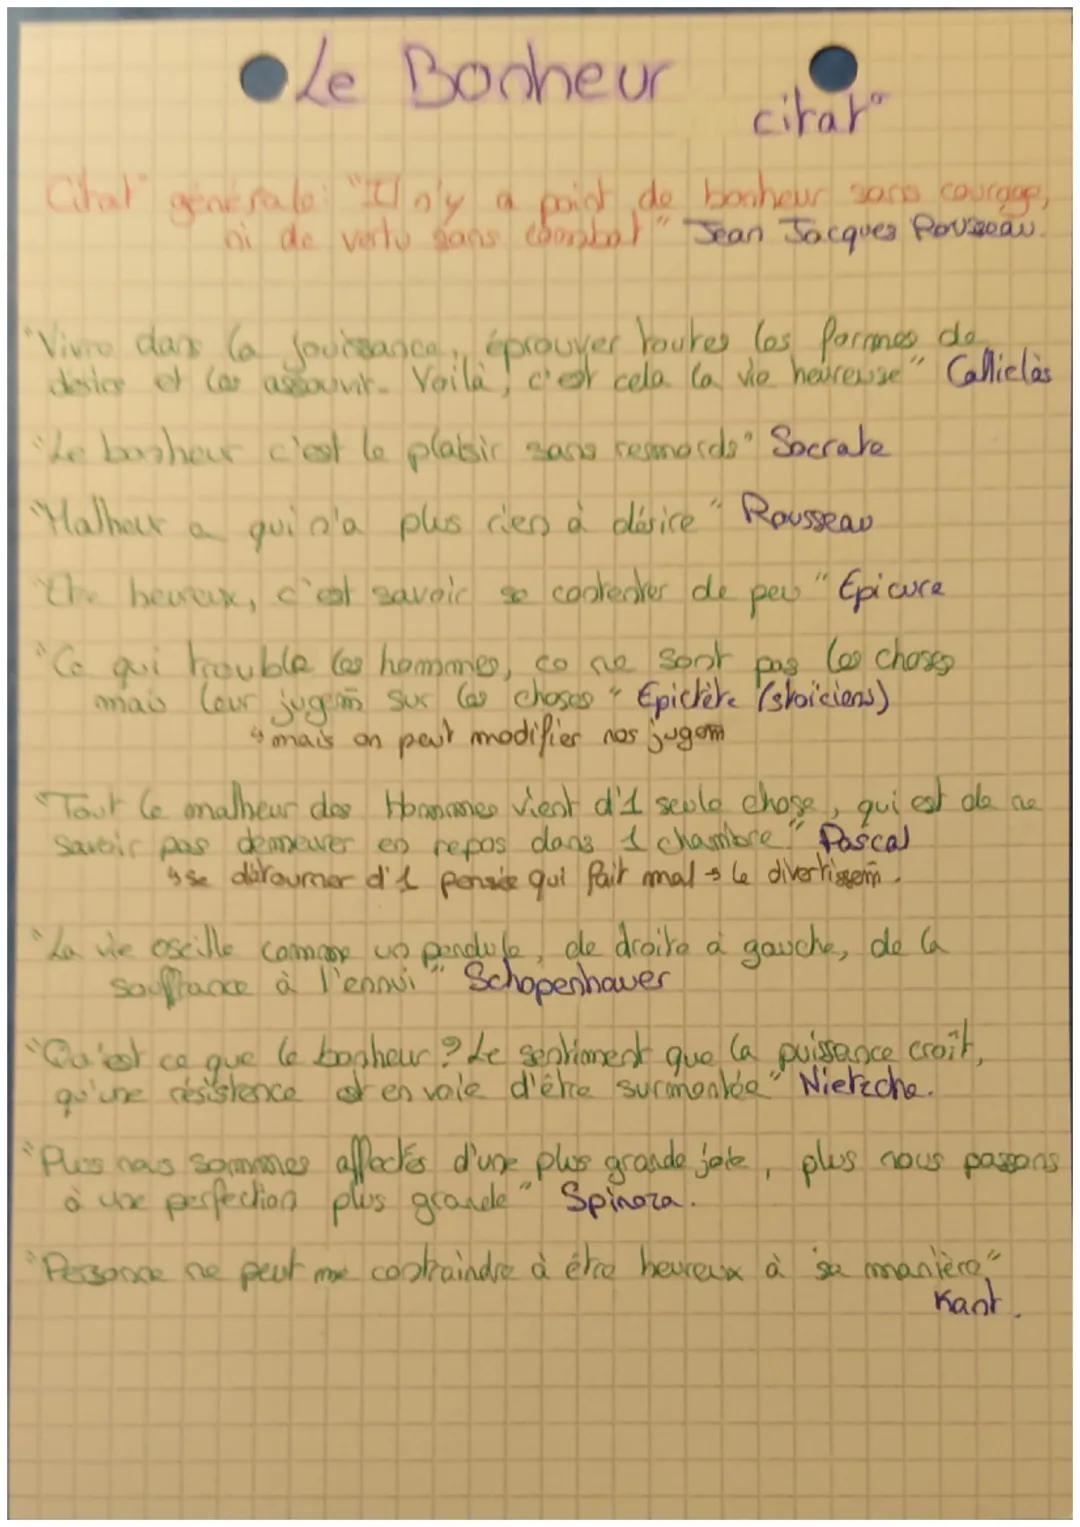 Le Bonheur
citat°
Citat° générale: "Il n'y a point de bonheur sans courage,
ni de vertu sans combat" Jean Jacques Rousseau.
"Vivre dans la jouissance, éprouver toutes les formes de
désirs et les assouvir. Voilà, c'est cela la vie heureuse" Calliclès
"Le bonheur c'est le plaisir sans remords" Socrate
"Malheur a qui n'a plus rien à désire" Rousseau
"Etre heureux, c'est savoir se contenter de peu" Epicure
"Ce qui trouble les hommes, ce ne sont pas les choses
mais leur jugem̄ sur les choses" Epictète (stoïciens)
↳ mais on peut modifier nos jugem
"Tout le malheur des Hommes vient d'1 seule chose, qui est de ne
savoir pas demeurer en repos dans 1 chambre." Pascal
↳ se détourner d'1 pensée qui fait mal → le divertissem̄.
"La vie oscille comme un pendule, de droite à gauche, de la
souffrance à l'ennui" Schopenhauer
"Qu'est ce que le bonheur ? Le sentiment que la puissance croît,
qu'une résistence est en voie d'être surmontée" Nietzche.
"Plus nous sommes affectés d'une plus grande joie, plus nous passons
à une perfection plus grande" Spinoza.
"Personne ne peut me contraindre à être heureux à sa manière"
Kant.